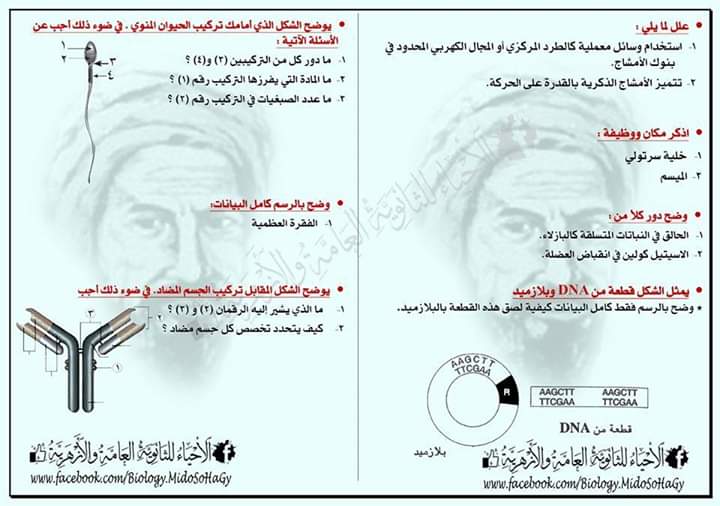 علل لما يلي :
١- استخدام وسائل معملية كالطرد المركزي أو المجال الكهربي المحدود في
بنوك الأمشاج.
٢- تتميز الأمشاج الذكرية بالقدرة على الحركة.
اذكر مكان ووظيفة :
١- خلية سرتولي
٢- الميسم
وضح دور كلاً من :
١- الحالق في النباتات المتسلقة كالبازلاء.
٢- الاسيتيل كولين في انقباض العضلة.
يمثل الشكل قطعة من DNA وبلازميد
* وضح بالرسم فقط كامل البيانات كيفية لصق هذه القطعة بالبلازميد.
AAGCTT
TTCGAA
R
AAGCTT AAGCTT
TTCGAA TTCGAA
قطعة من DNA
بلازميد
الأحياء للثانوية العامة والأزهرية
www.facebook.com/Biology.MidoSoHaGy
يوضح الشكل الذي أمامك تركيب الحيوان المنوي . في ضوء ذلك أجب عن
الأسئلة الآتية :
١- ما دور كل من التركيبين (٣) و(٤) ؟
٢- ما المادة التي يفرزها التركيب رقم (١) ؟
٣- ما عدد الصبغيات في التركيب رقم (٢) ؟
١
٢
٣
٤
وضح بالرسم كامل البيانات:
١- الفقرة العظمية
يوضح الشكل المقابل تركيب الجسم المضاد. في ضوء ذلك أجب
١- ما الذي يشير إليه الرقمان (٢) و (٣) ؟
٢- كيف يتحدد تخصص كل جسم مضاد ؟
٣
٢
١
الأحياء للثانوية العامة والأزهرية
www.facebook.com/Biology.MidoSoHaGy
الأحياء للثانوية العامة والأزهرية